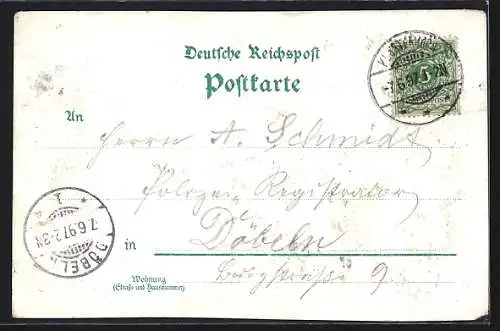 Deutsche Reichspost
Postkarte
An
Herrn A. Schmidt
Polizei Registrator
in Döbeln
Burgstrasse 9.
Wohnung
(Straße und Hausnummer)
7.6.97. 2-3N
DÖBELN
1
5
7.6.97.